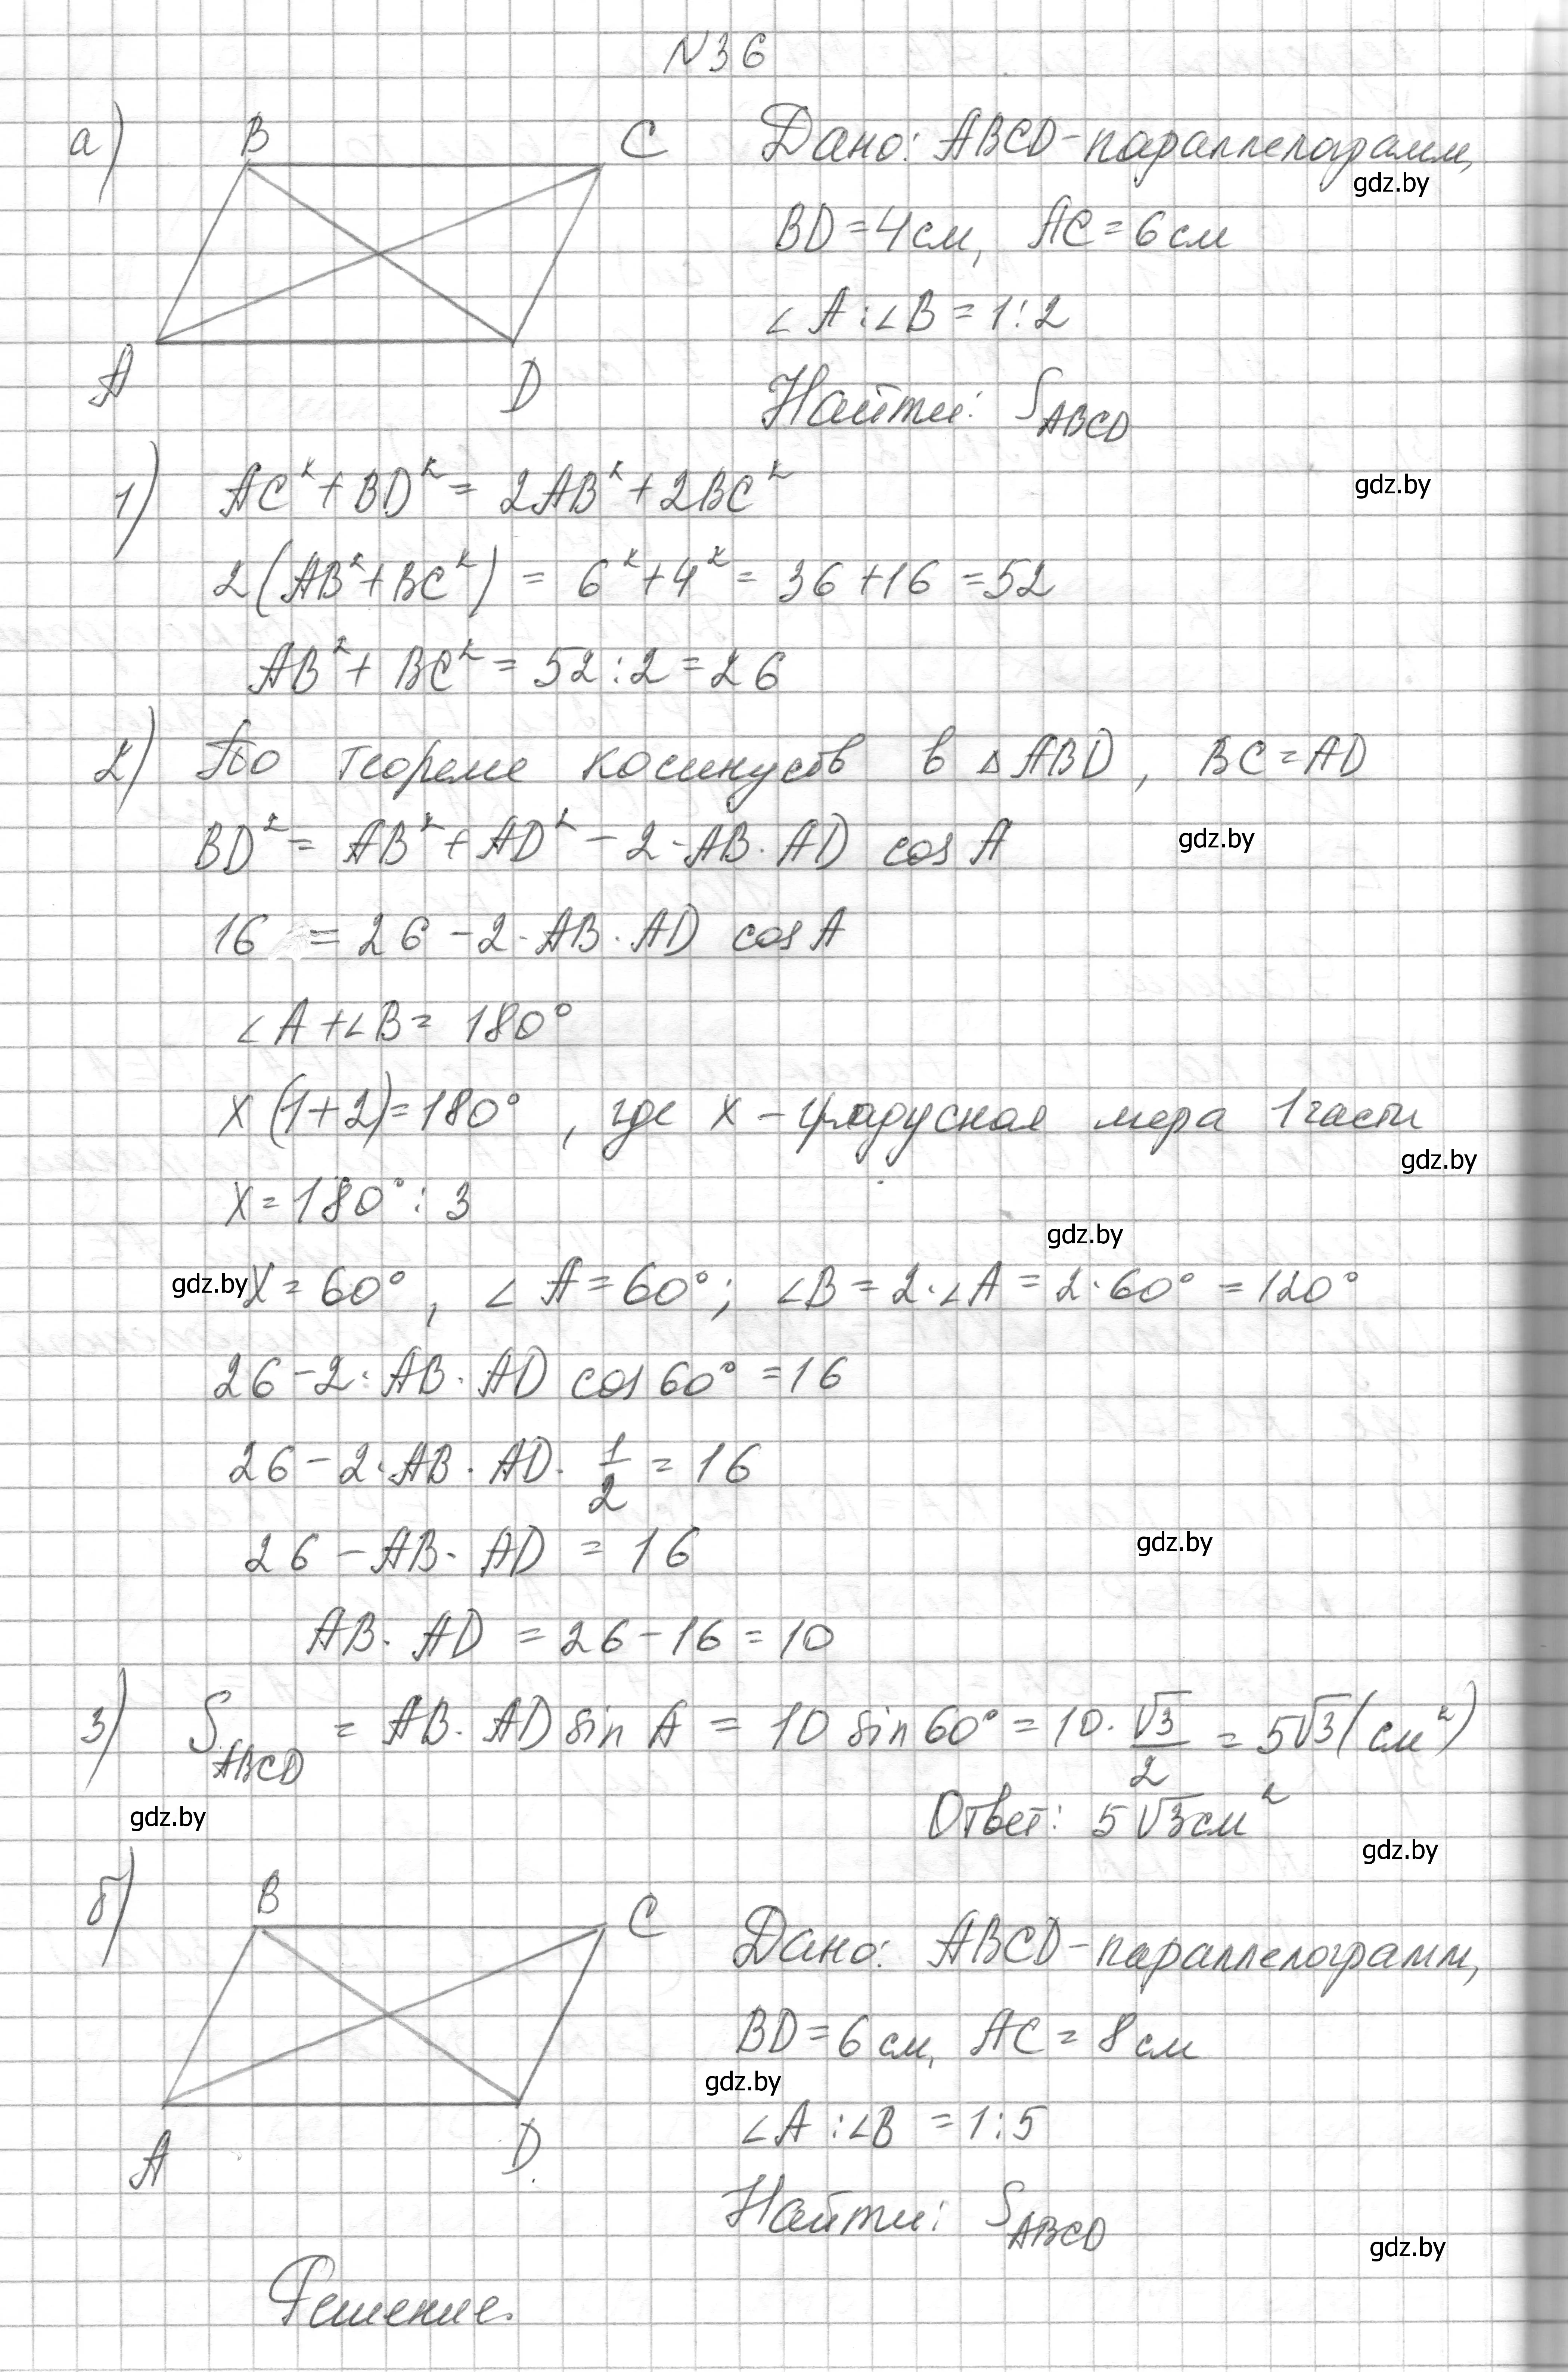 N36
а) B C Дано: ABCD-параллелограмм,
gdz.by
BD=4см, AC=6см
∠A:∠B=1:2
A D Найти: S_ABCD
1) AC²+BD²=2AB²+2BC²
gdz.by
2(AB²+BC²)=6²+4²=36+16=52
AB²+BC²=52:2=26
2) По теореме косинусов в △ABD, BC=AD
BD²=AB²+AD²-2·AB·AD cosA
gdz.by
16=26-2·AB·AD cosA
∠A+∠B=180°
x(1+2)=180°, где x-градусная мера 1 части
gdz.by
x=180°:3
gdz.by
gdz.by x=60°, ∠A=60°; ∠B=2·∠A=2·60°=120°
26-2·AB·AD cos60°=16
26-2·AB·AD·1/2=16
26-AB·AD=16
gdz.by
AB·AD=26-16=10
3) S_ABCD=AB·AD sinA=10 sin60°=10·√3/2=5√3(см²)
gdz.by
Ответ: 5√3см²
gdz.by
б) B C Дано: ABCD-параллелограмм,
BD=6см, AC=8см
gdz.by
∠A:∠B=1:5
A D Найти: S_ABCD
gdz.by
Решение.